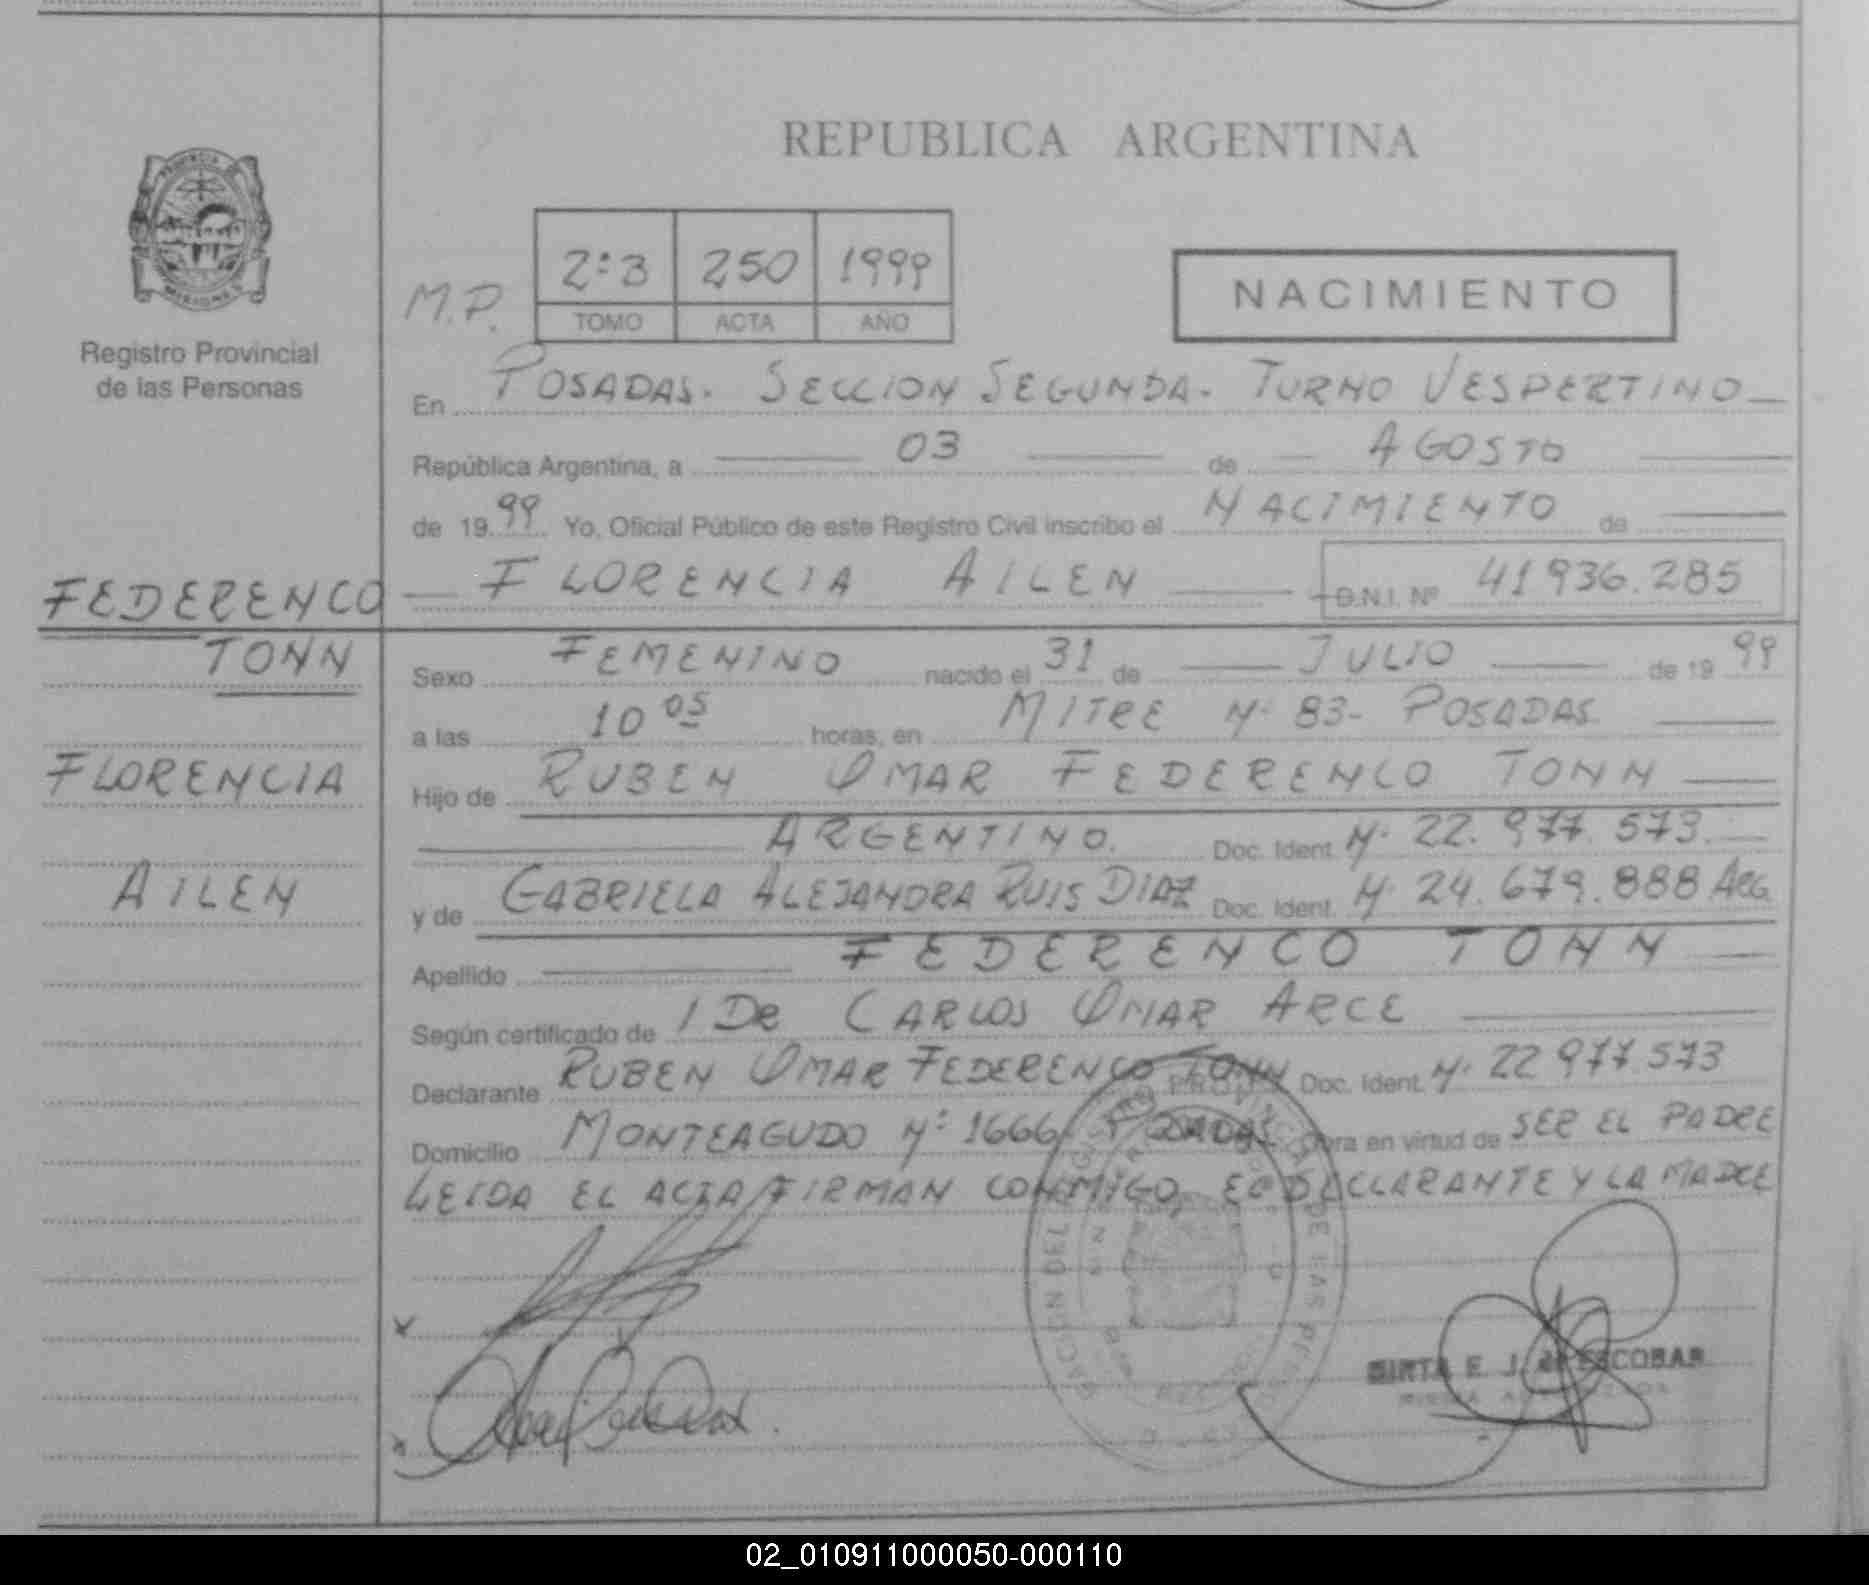 REPUBLICA ARGENTINA
PROVINCIA DE
MISIONES
Registro Provincial
de las Personas
M.P.
2:3 250 1999
TOMO ACTA AÑO
NACIMIENTO
En POSADAS. SECCION SEGUNDA. TURNO VESPERTINO
República Argentina, a 03 de AGOSTO
de 1999 Yo, Oficial Público de este Registro Civil inscribo el NACIMIENTO de
FLORENCIA AILEN D.N.I. Nº 41936.285
FEDERENCO
TONN
FLORENCIA
AILEN
Sexo FEMENINO nacido el 31 de JULIO de 1999
a las 10 05 horas, en MITRE Nº 83- POSADAS.
Hijo de RUBEN OMAR FEDERENCO TONN
ARGENTINO. Doc. Ident. Nº 22.977.573.
y de GABRIELA ALEJANDRA RUIS DIAZ Doc. Ident. Nº 24.679.888 ARG.
Apellido FEDERENCO TONN
Según certificado de / DR CARLOS OMAR ARCE
Declarante RUBEN OMAR FEDERENCO TONN Doc. Ident. Nº 22977.573
Domicilio MONTEAGUDO Nº 1666 POSADAS Obra en virtud de SER EL PADRE
LEIDA EL ACTA FIRMAN CONMIGO EL DECLARANTE Y LA MADRE
E. J. de ESCOBAR
02_010911000050-000110